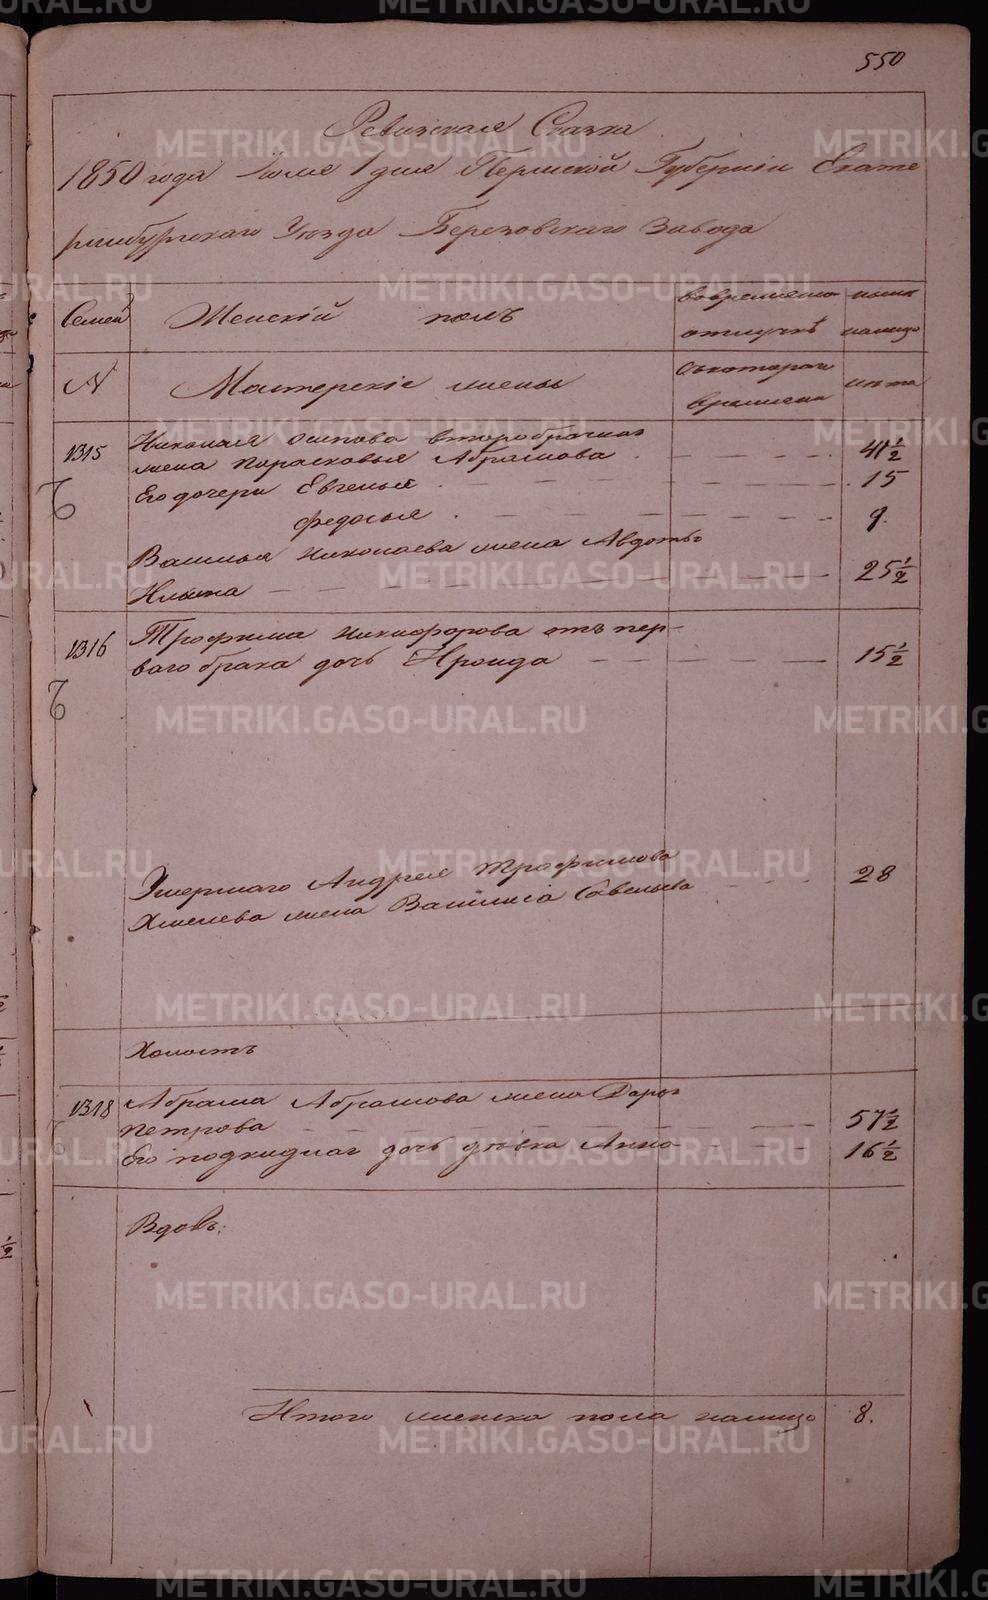 550
Ревизская Сказка
1850 года Июля 1 дня Пермской Губернiи Екате
ринбургскаго Уезда Березовскаго Завода
Семей Женскiй полъ вовременной отлучкѣ ныне налицо
№ Мастерскiе жены Съкотораго времени лѣта
1315 Николая Осипова второбрачная
жена Парасковья Абрамова . — — — — 41 1/2
Его дочери Евгенья . — — — — 15
Федосья . — — — — 9.
Василья Николаева жена Авдотья
Ильина — — — — 25 1/2
1316 Трофима Никифорова отъ пер-
ваго брака дочь Ироида — — — — 15 1/2
Умершаго Андрея Трофимова
Хмелева жена Василиса Савельева — — — 28
Холостъ
1318 Абрама Абрамова жена Дарья
Петрова — — — — 57 1/2
Его подкидная дочь дѣвка Анна — — — 16 1/2
Вдовъ.
Итого женска пола налицо 8.
METRIKI.GASO-URAL.RU